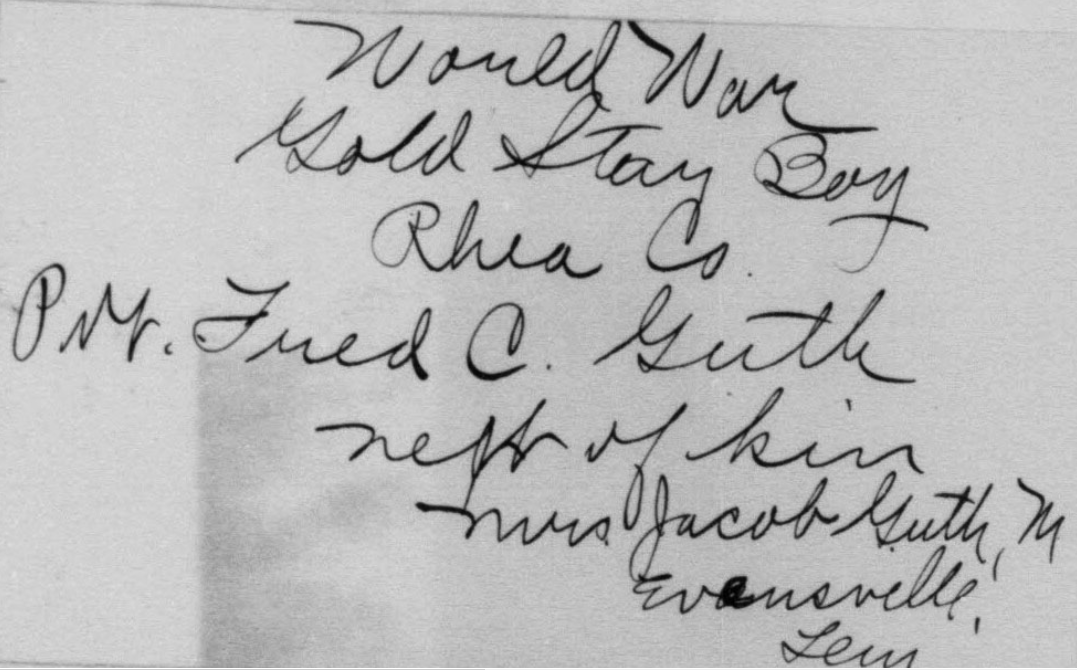 World War
Gold Star Boy
Rhea Co.
Pvt. Fred C. Guth
next of kin
Mrs Jacob Guth, M
Evensville,
Tenn